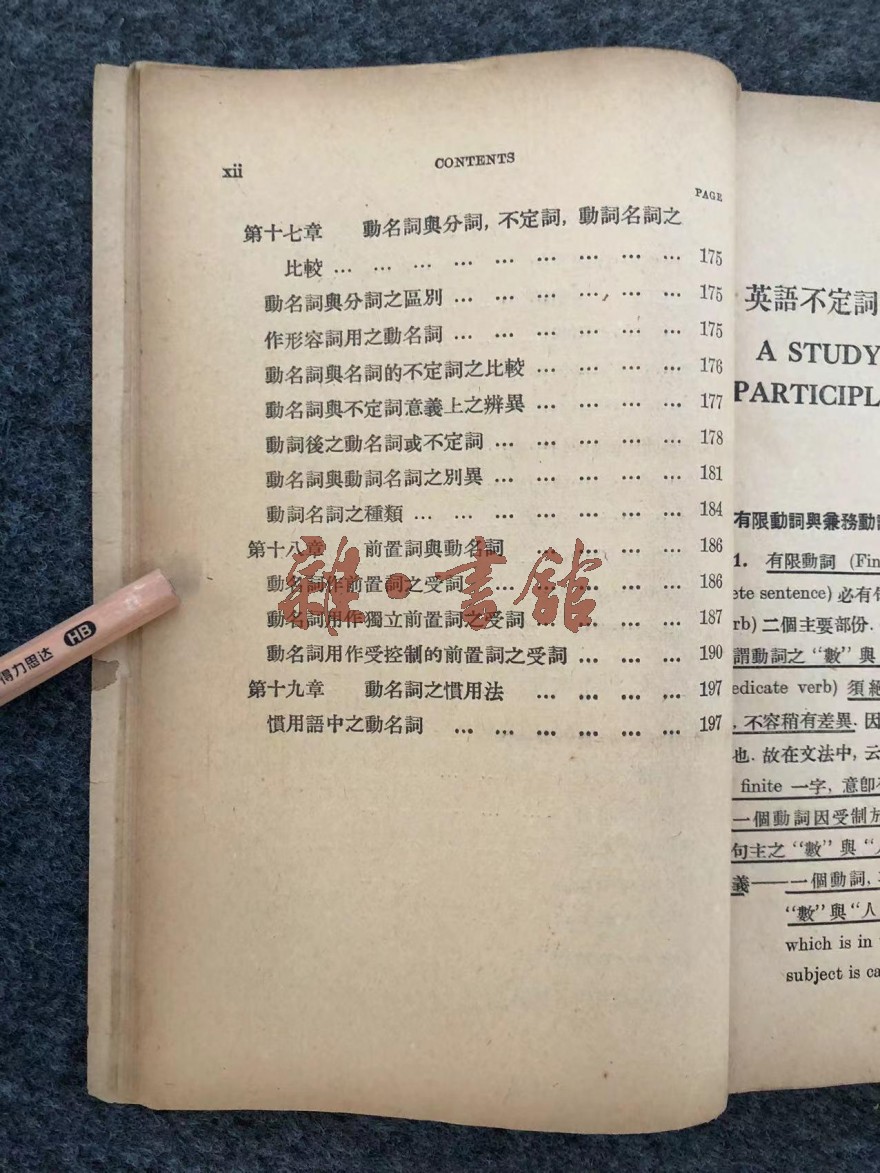 xii
CONTENTS
PAGE
第十七章 動名詞與分詞, 不定詞, 動詞名詞之
比較 ... ... ... ... ... ... ... ... ... 175
動名詞與分詞之區別 ... ... ... ... ... ... 175
作形容詞用之動名詞 ... ... ... ... ... ... 175
動名詞與名詞的不定詞之比較 ... ... ... ... 176
動名詞與不定詞意義上之辨異 ... ... ... ... 177
動詞後之動名詞或不定詞 ... ... ... ... ... 178
動名詞與動詞名詞之別異 ... ... ... ... ... 181
動詞名詞之種類 ... ... ... ... ... ... ... 184
第十八章 前置詞與動名詞 ... ... ... ... 186
動名詞作前置詞之受詞 ... ... ... ... ... 186
動名詞用作獨立前置詞之受詞 ... ... ... ... 187
動名詞用作受控制的前置詞之受詞 ... ... ... 190
第十九章 動名詞之慣用法 ... ... ... ... 197
慣用語中之動名詞 ... ... ... ... ... ... 197
雜·書館
得力思达 HB
英語不定詞
A STUDY
PARTICIPL
有限動詞與兼務動詞
1. 有限動詞 (Fin
ete sentence) 必有
rb) 二個主要部份.
謂動詞之 “數” 與
edicate verb) 須絕
, 不容稍有差異. 因
也. 故在文法中, 云
finite 一字, 意卽
一個動詞因受制於
句主之 “數” 與 “人
義——一個動詞,
“數” 與 “人
which is in
subject is ca